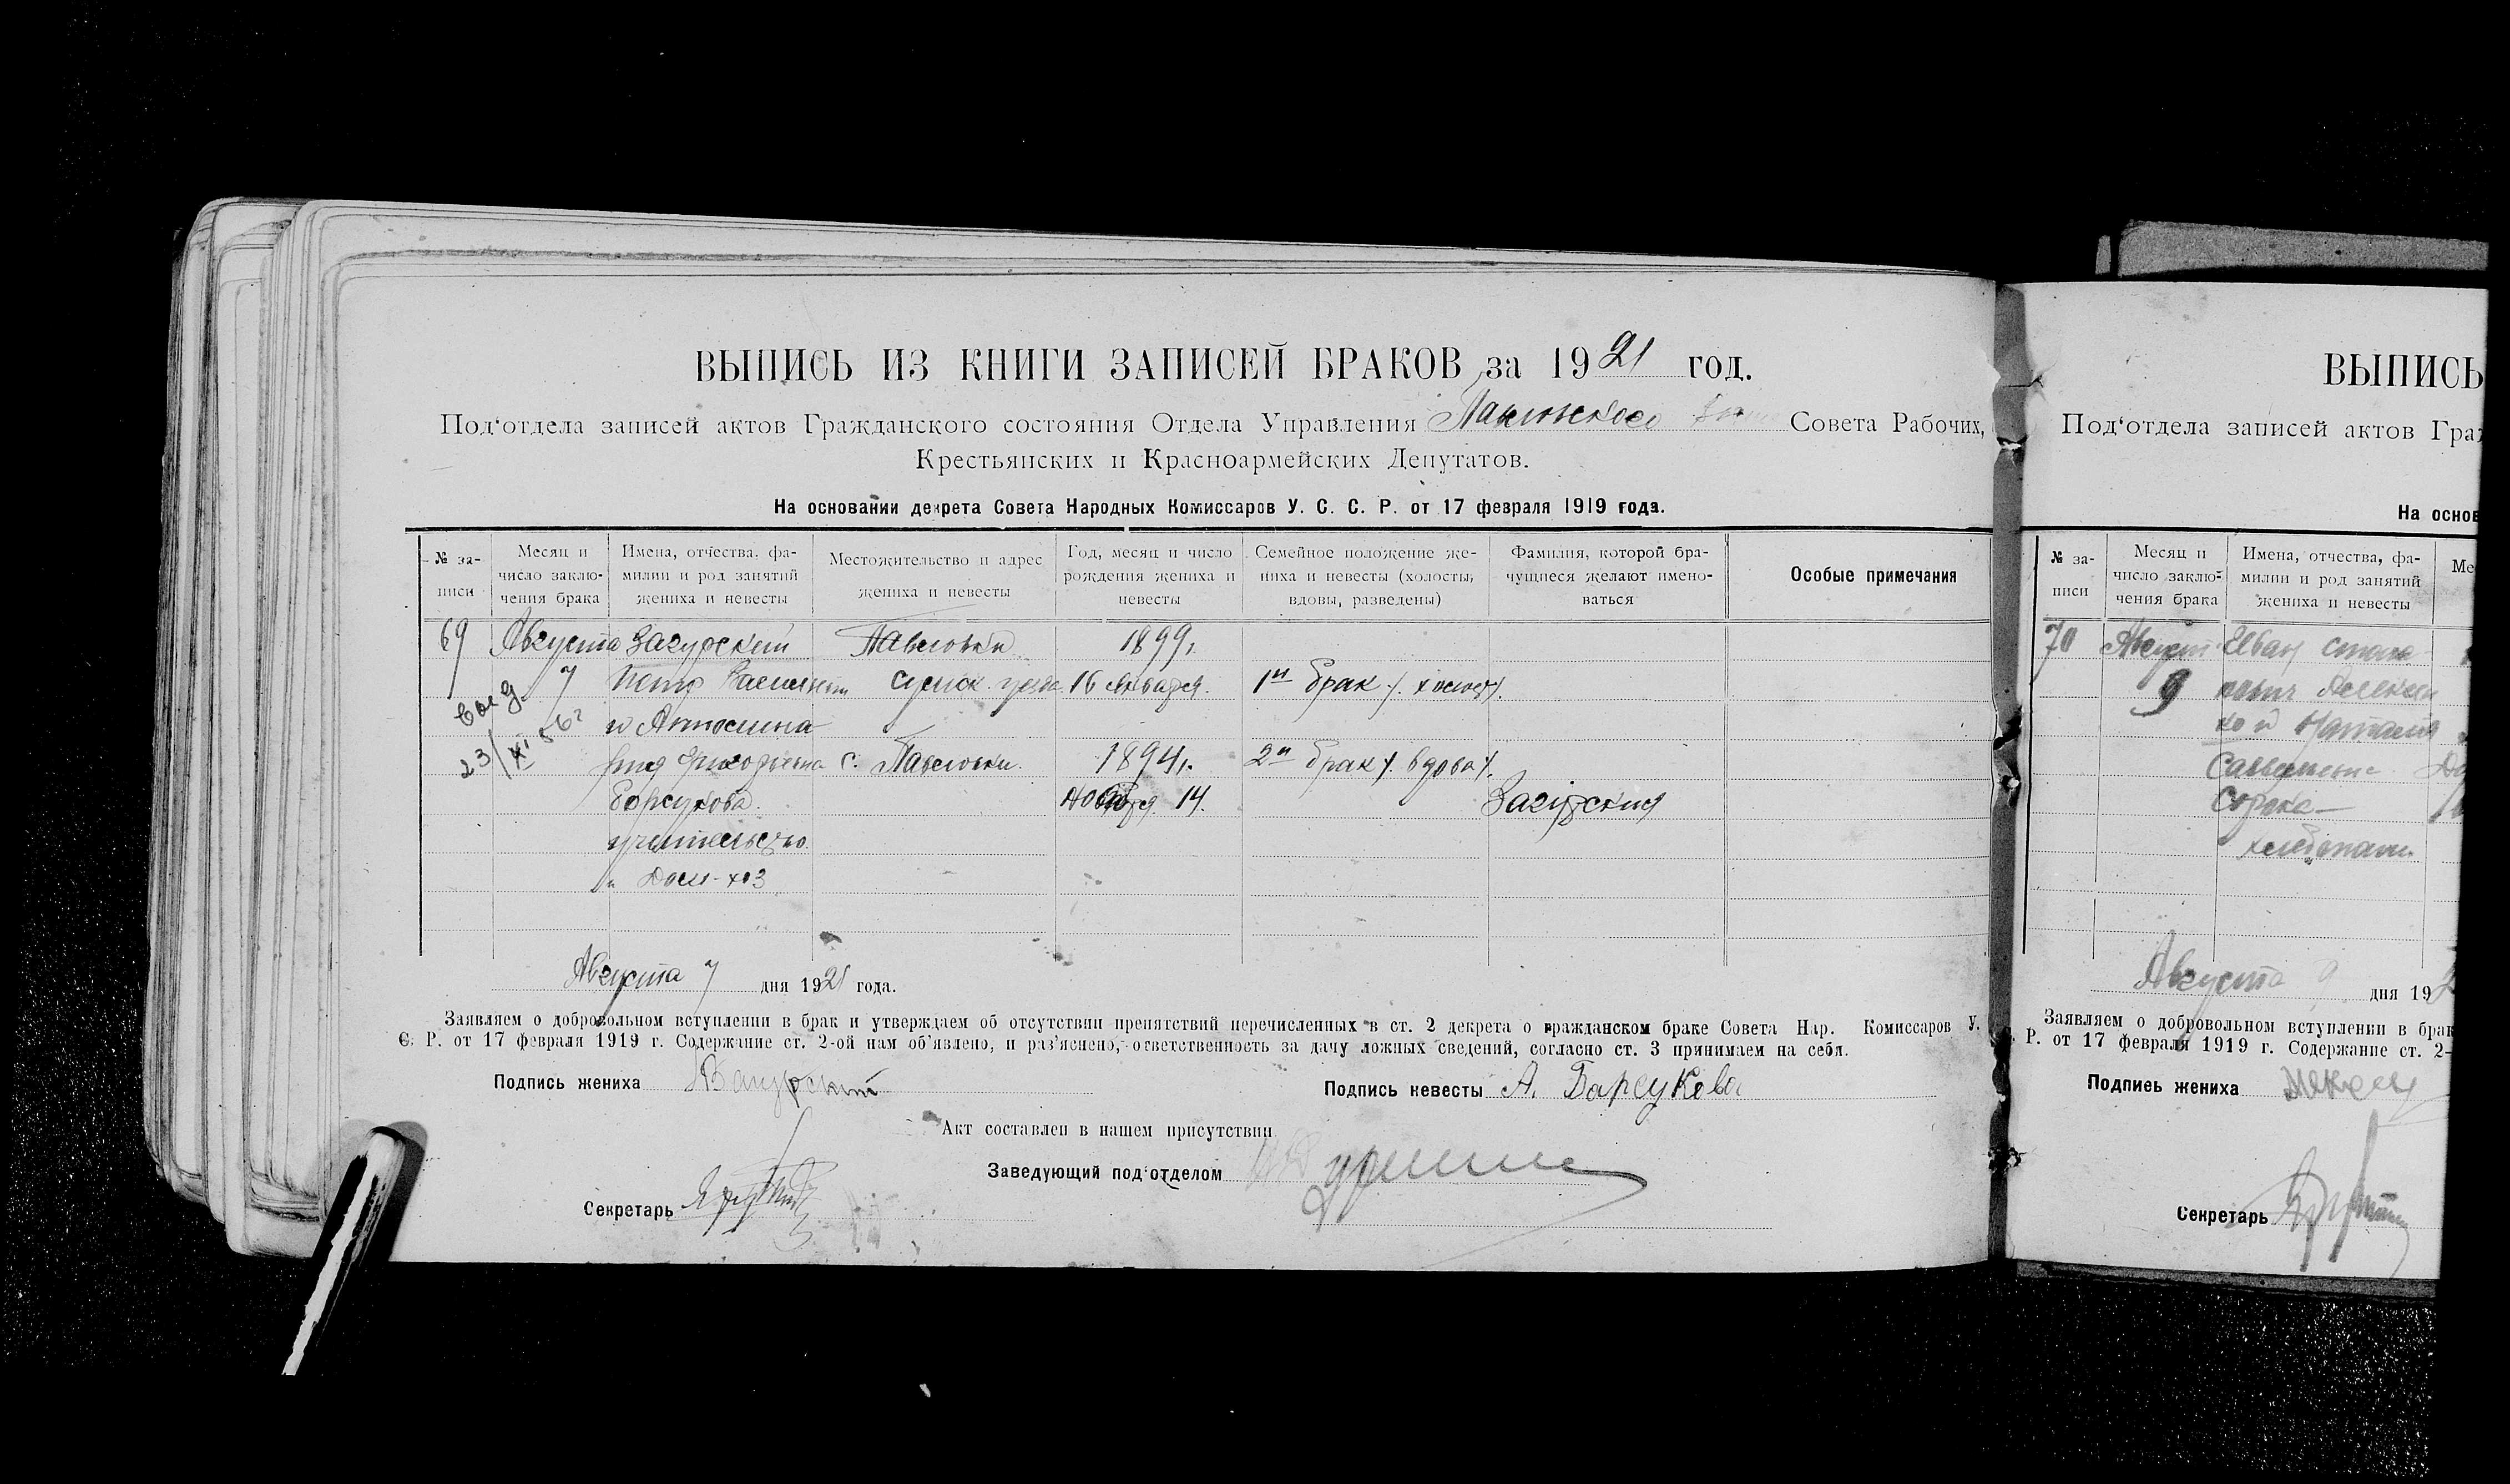 ВЫПИСЬ ИЗ КНИГИ ЗАПИСЕЙ БРАКОВ за 1921 год.
Под‘отдела записей актов Гражданского состояния Отдела Управления Павловского Совета Рабочих,
Крестьянских и Красноармейских Депутатов.
На основании декрета Совета Народных Комиссаров У. С. С. Р. от 17 февраля 1919 года.
№ за-
писи
Месяц и
число заклю-
чения брака
Имена, отчества, фа-
милии и род занятий
жениха и невесты
Местожительство и адрес
жениха и невесты
Год, месяц и число
рождения жениха и
невесты
Семейное положение же-
ниха и невесты (холосты,
вдовы, разведены)
Фамилия, которой бра-
чущиеся желают имено-
ваться
Особые примечания
69 Августа Загурский Павловки 1899.
7 Петр Сумск. уезда 16 января. 1й брак /. холост /.
и Антонина
Григорьевна с. Павловки. 1894. 2й брак /. вдова /.
Борсукова. ноября 14. Загурския
учительство
" Дом-хоз
выд.
23/XI 56г
Августа 7 дня 1921 года.
Заявляем о добровольном вступлении в брак и утверждаем об отсутствии препятствий перечисленных в ст. 2 декрета о гражданском браке Совета Нар. Комиссаров У.
С. Р. от 17 февраля 1919 г. Содержание ст. 2-ой нам об‘явлено, и раз‘яснено, ответственность за дачу ложных сведений, согласно ст. 3 принимаем на себя.
Подпись жениха Загурский
Подпись невесты А. Барсукова
Акт составлен в нашем присутствии
Заведующий под‘отделом
Секретарь
ВЫПИСЬ
Под‘отдела записей актов Граж
На основ
№ за-
писи
Месяц и
число заклю-
чения брака
Имена, отчества, фа-
милии и род занятий
жениха и невесты
Ме
70 Август
9
ко и Наталия
Сорока
Августа 9 дня 192
Заявляем о добровольном вступлении в брак
Р. от 17 февраля 1919 г. Содержание ст. 2-
Подпись жениха
Секретарь